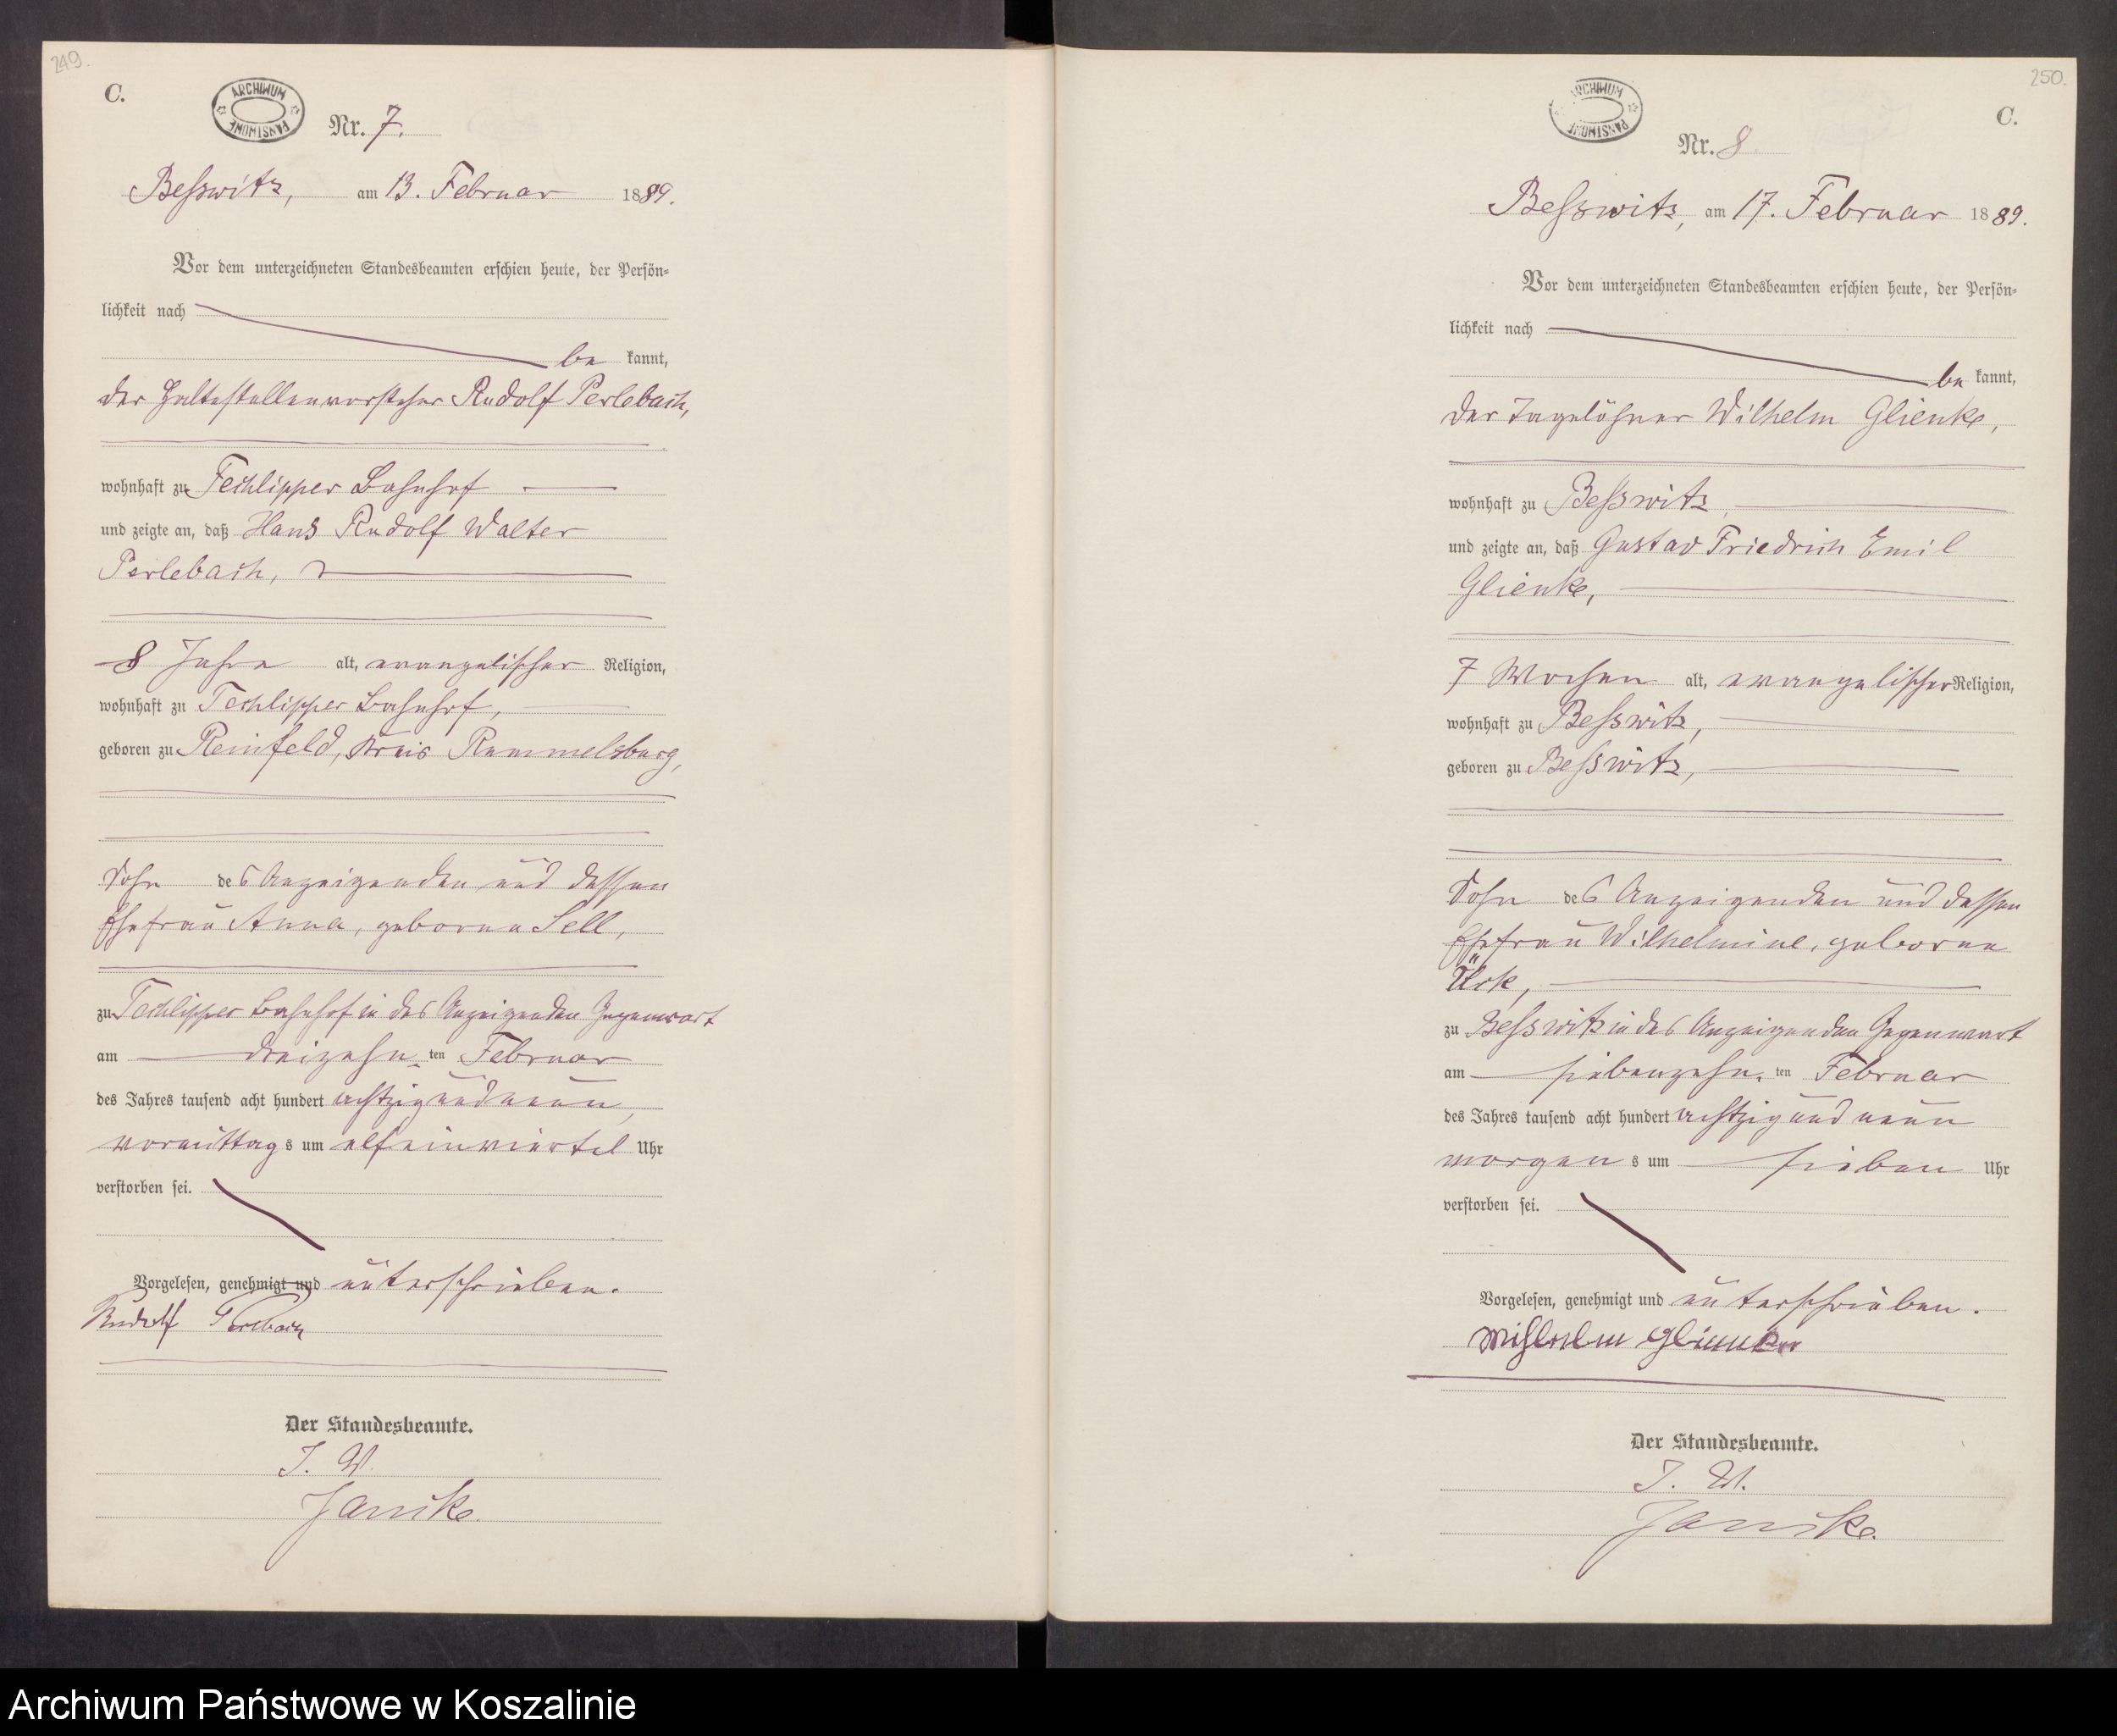 249.
C.
ARCHIWUM PAŃSTWOWE
Nr. 7.
Beßwitz, am 13. Februar 1889.
Vor dem unterzeichneten Standesbeamten erschien heute, der Persön-
lichkeit nach
be kannt,
der Haltestellenvorsteher Rudolf Perlebach,
wohnhaft zu Techlipper Bahnhof
und zeigte an, daß Hans Rudolf Walter
Perlebach,
8 Jahre alt, evangelischer Religion,
wohnhaft zu Techlipper Bahnhof,
geboren zu Reinfeld, Kreis Rummelsburg,
Sohn des Anzeigenden und dessen
Ehefrau Anna, geborne Sell,
zu Techlipper Bahnhof in des Anzeigenden Gegenwart
am dreizehn ten Februar
des Jahres tausend acht hundert achtzig und neun,
vormittag s um elf einviertel Uhr
verstorben sei.
Vorgelesen, genehmigt und unterschrieben.
Rudolf Perlebach
Der Standesbeamte.
J. V.
Janike.
250.
C.
ARCHIWUM PAŃSTWOWE
Nr. 8
Beßwitz, am 17. Februar 1889.
Vor dem unterzeichneten Standesbeamten erschien heute, der Persön-
lichkeit nach
be kannt,
der Tagelöhner Wilhelm Glienke,
wohnhaft zu Beßwitz,
und zeigte an, daß Gustav Friedrich Emil
Glienke,
7 Wochen alt, evangelischer Religion,
wohnhaft zu Beßwitz,
geboren zu Beßwitz,
Sohn des Anzeigenden und dessen
Ehefrau Wilhelmine, geborne
Ück,
zu Beßwitz in des Anzeigenden Gegenwart
am siebenzehn ten Februar
des Jahres tausend acht hundert achtzig und neun
morgen s um sieben Uhr
verstorben sei.
Vorgelesen, genehmigt und unterschrieben.
Wilhelm Glienke
Der Standesbeamte.
J. V.
Janike.
Archiwum Państwowe w Koszalinie